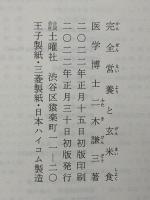 完全営養と玄米食
医学博士 二木謙三著
二〇二二年正月十五日初版印刷
二〇二二年正月三十日初版発行
土曜社 渋谷区猿楽町一一―二〇
王子製紙・三菱製紙・日本ハイコム製造